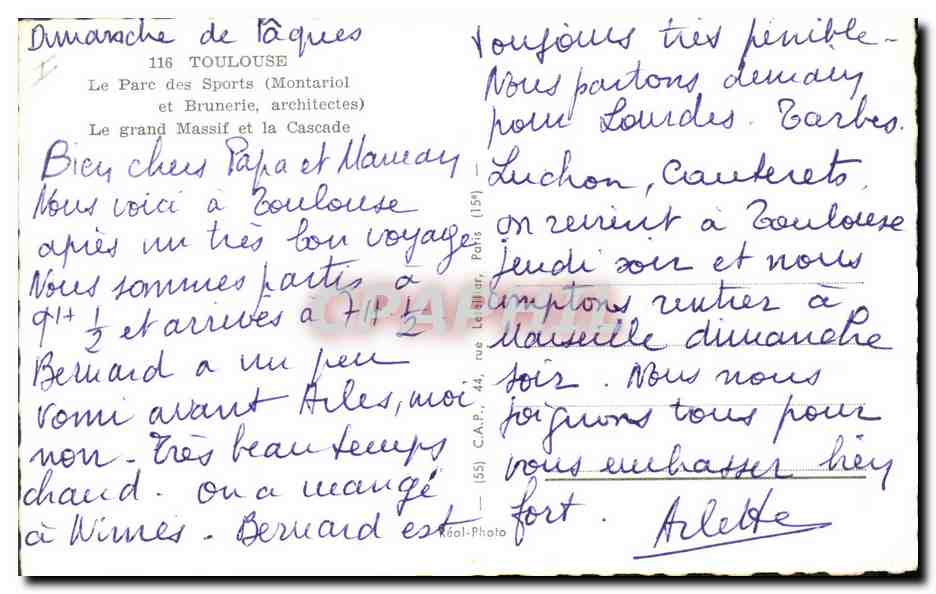 Dimanche de Pâques
116 TOULOUSE
Le Parc des Sports (Montariol
et Brunerie, architectes)
Le grand Massif et la Cascade
Bien chers Papa et Maman
Nous voici à Toulouse
après un très bon voyage
Nous sommes partis à
9H 1/2 et arrivés à 7H 1/2
Bernard a un peu
vomi avant Arles, moi
non - Très beau temps
chaud. On a mangé
à Nîmes - Bernard est
(55) C.A.P., 44, rue Letellier, Paris (15e)
Réal-Photo
CPAPHIL
toujours très pénible -
Nous partons demain
pour Lourdes. Tarbes.
Luchon, Cauterets,
on revient à Toulouse
jeudi soir et nous
comptons rentrer à
Marseille dimanche
soir. Nous nous
joignons tous pour
vous embrasser bien
fort.
Arlette